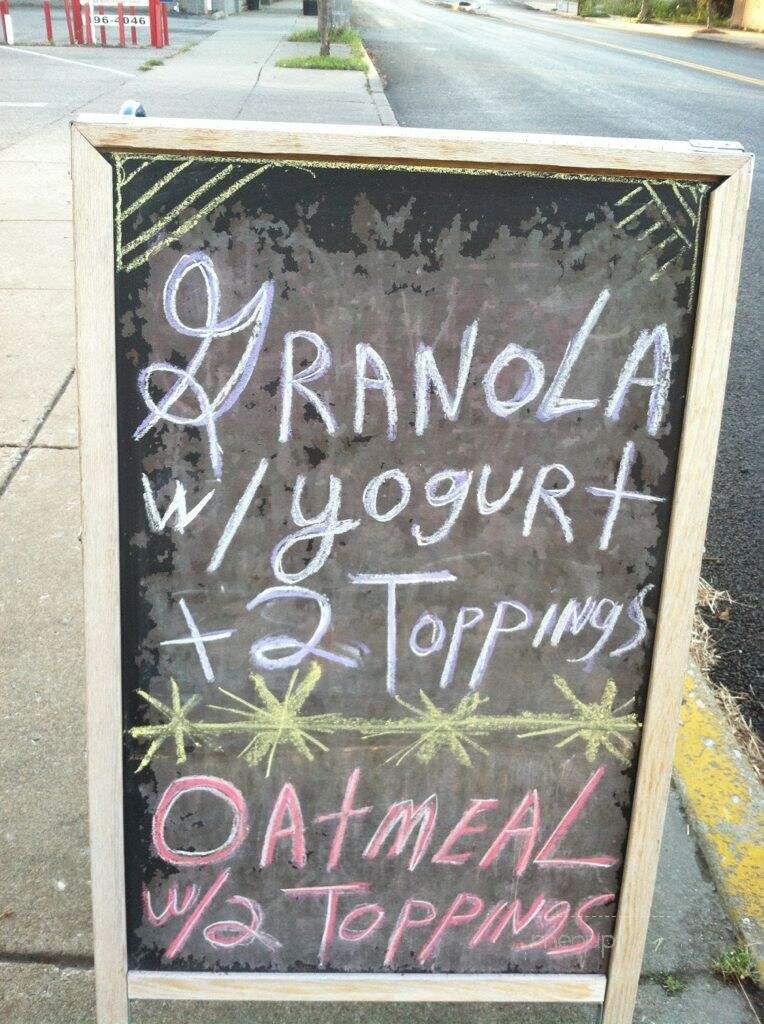 96-4046
GRANOLA
w/yogurt
+2 TOPPINGS
OAtMEAL
w/2 TOPPINGS
menup